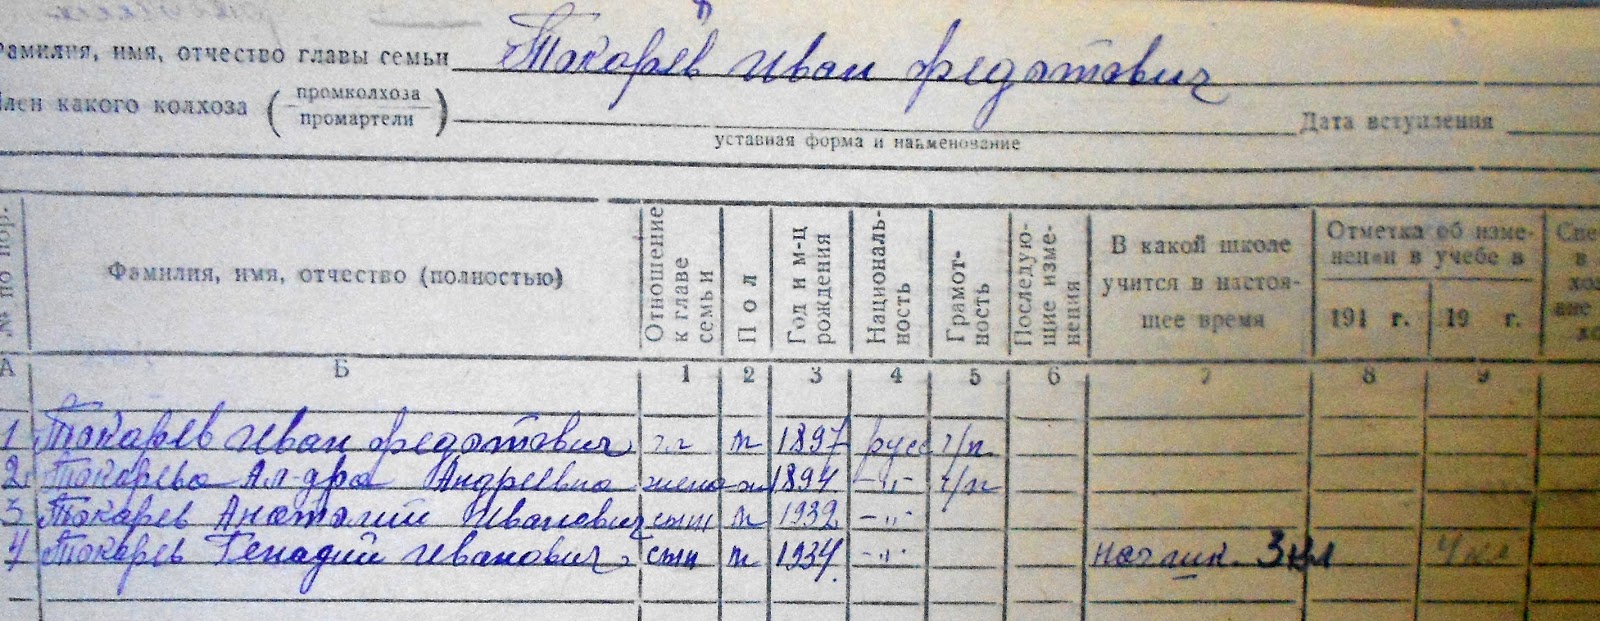 Фамилия, имя, отчество главы семьи Токарев Иван Федотович
Член какого колхоза (промколхоза
промартели)
Дата вступления
уставная форма и наименование
№ по пор.
Фамилия, имя, отчество (полностью)
Отношение к главе семьи
Пол
Год и м-ц рождения
Националь-ность
Грамот-ность
Последую-щие изме-нения
В какой школе учится в настоя-щее время
Отметка об изме-нении в учебе в
191 г. 19 г.
А Б 1 2 3 4 5 6 7 8 9
1 Токарев Иван Федотович гл м 1897 русс г/п
2 Токарева Ал-дра Андреевна жена ж 1894 -"- г/п
3 Токарев Анатолий Иванович сын м 1932 -"-
4 Токарев Генадий Иванович сын м 1934 -"- нач шк. 3 кл 4 кл